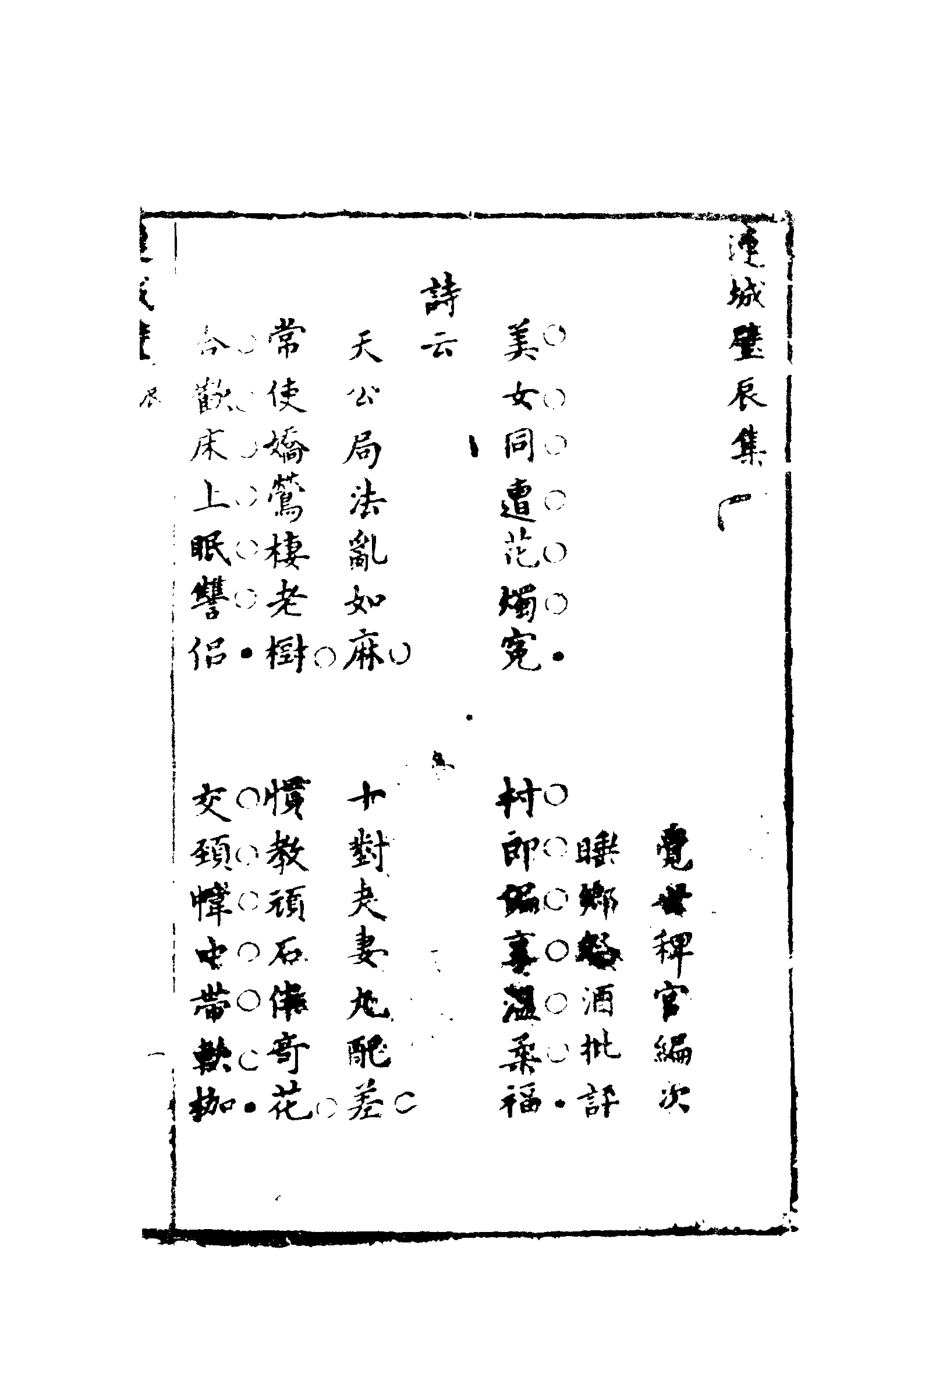 連城璧辰集
覺世稗官編次
睡鄉祭酒批評
美女同遭花燭冤　村郎偏享溫柔福
詩云
天公局法亂如麻　十對夫妻九配差
常使嬌鶯棲老樹　慣教頑石伴奇花
合歡床上眠讐侶　交頸幃中帶軟枷
連城璧 辰 一